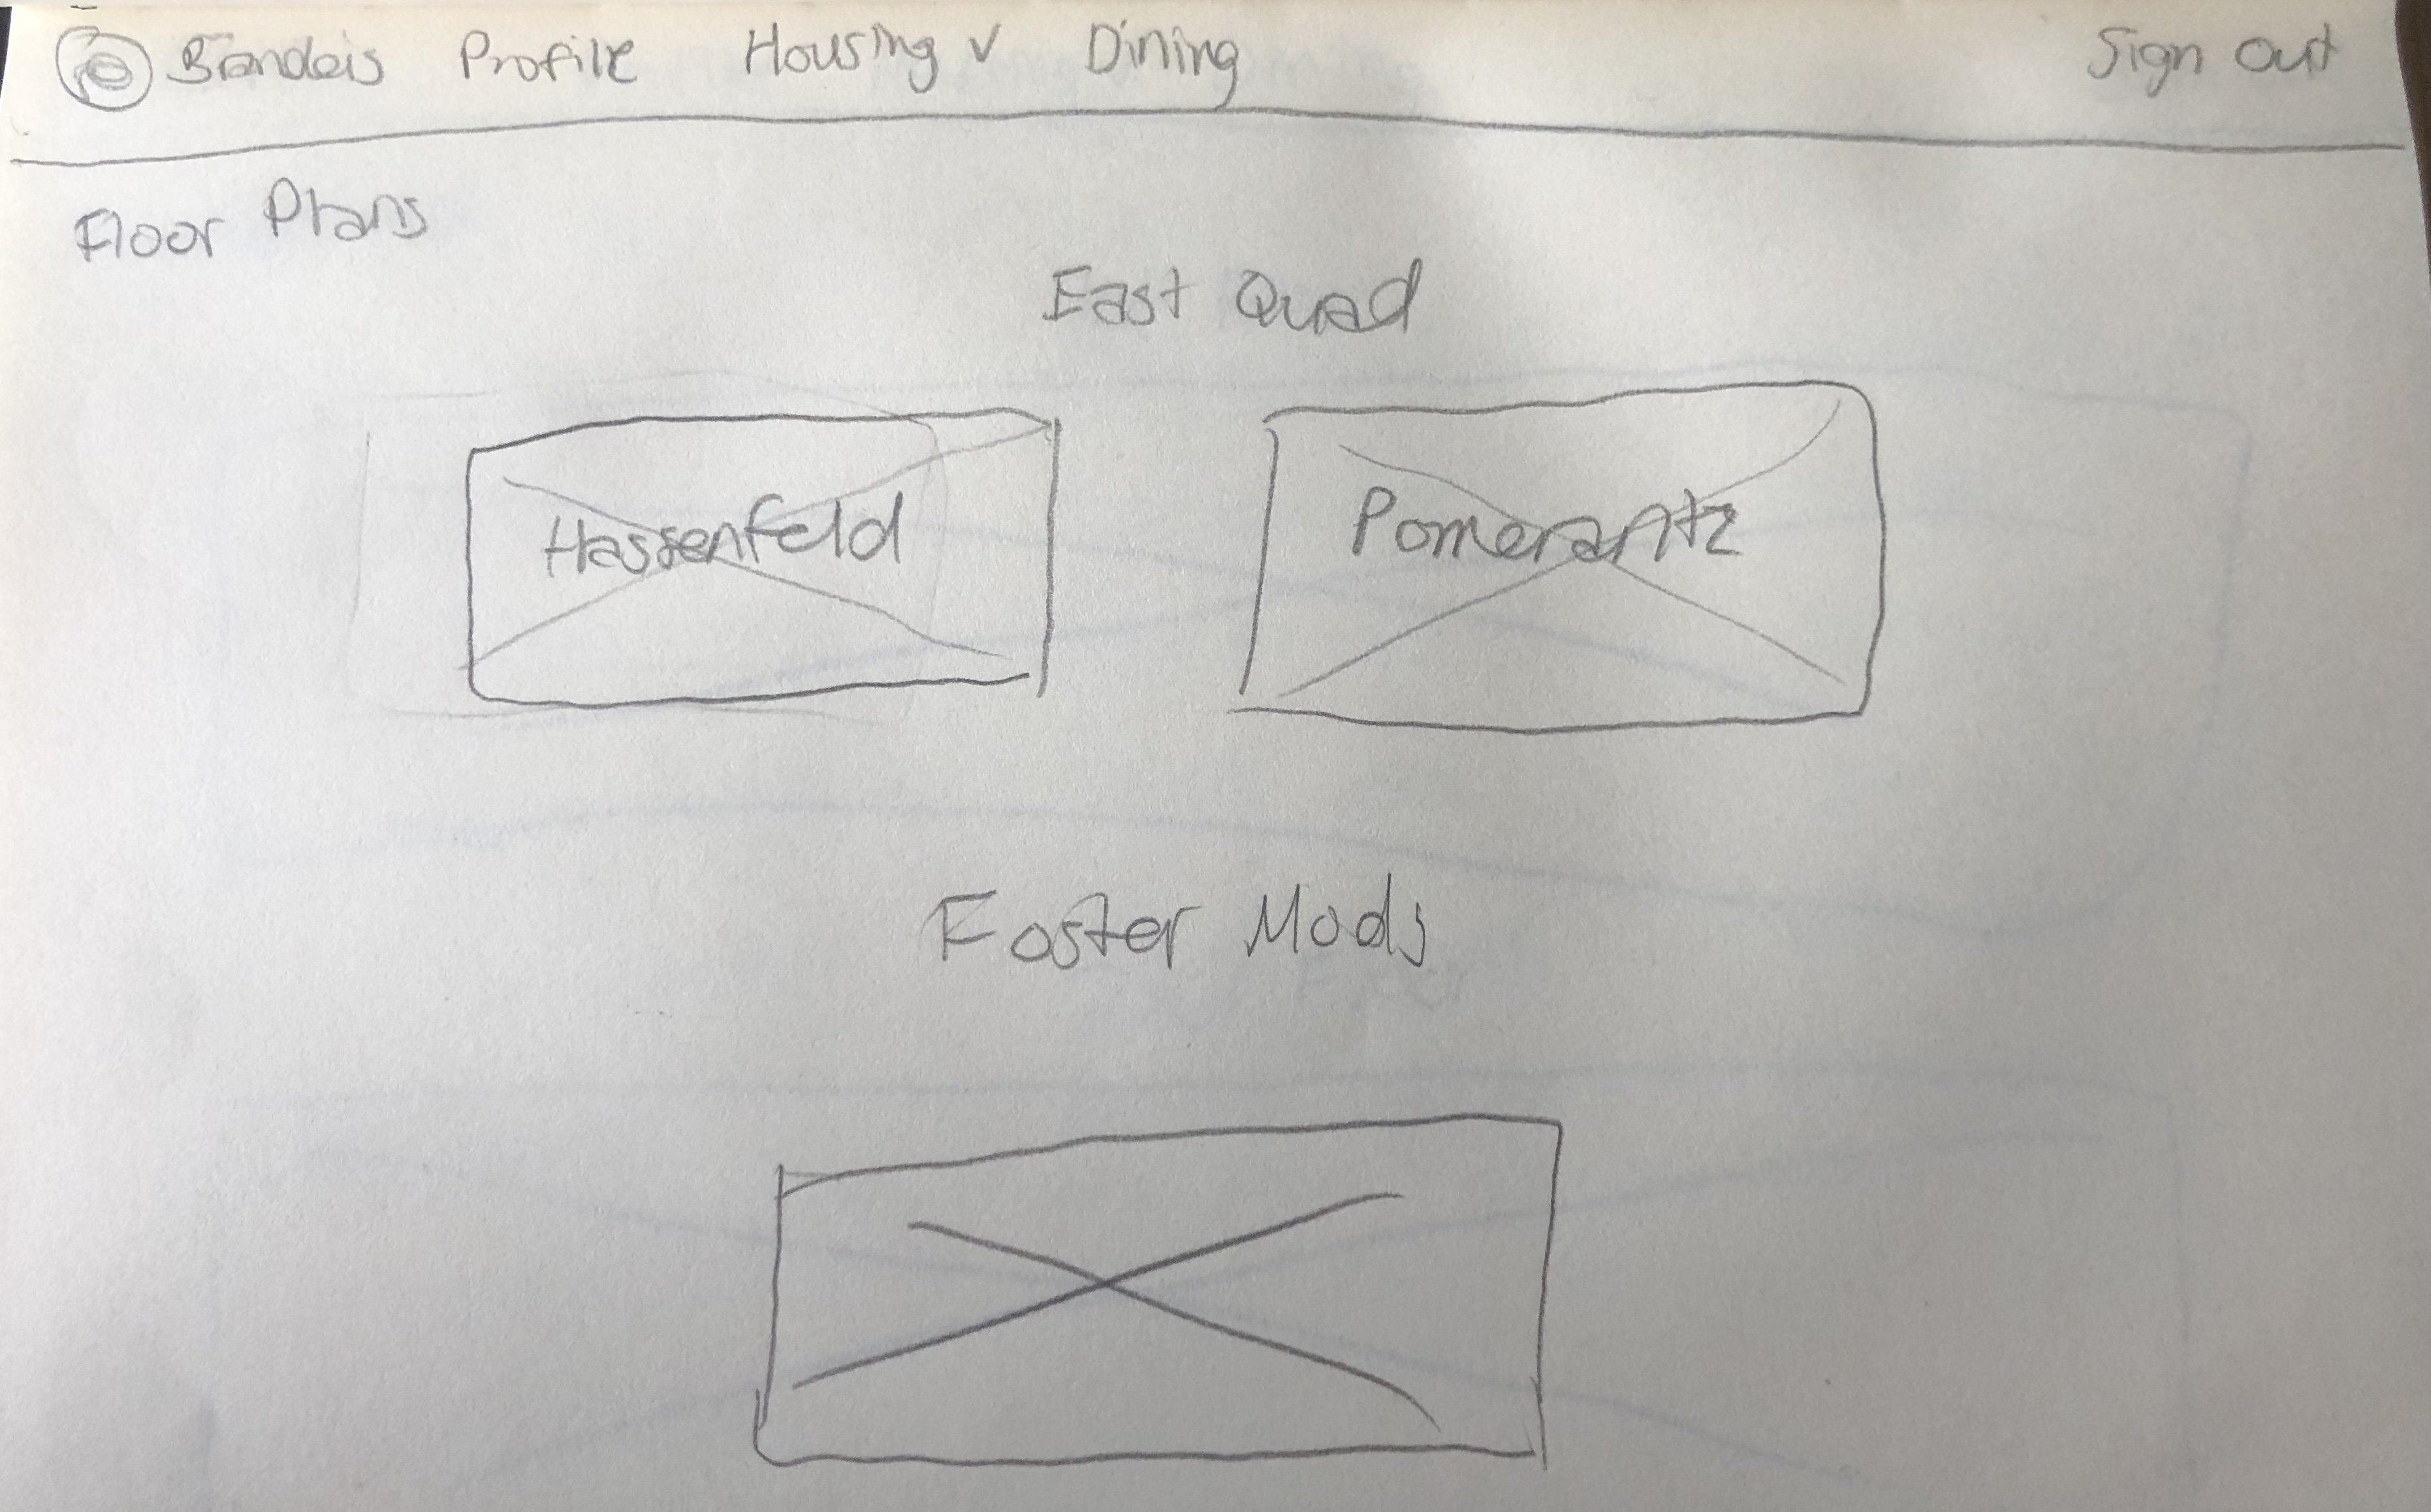 Brandeis Profile Housing v Dining Sign Out
Floor Plans
East Quad
Hassenfeld Pomerantz
Foster Mods